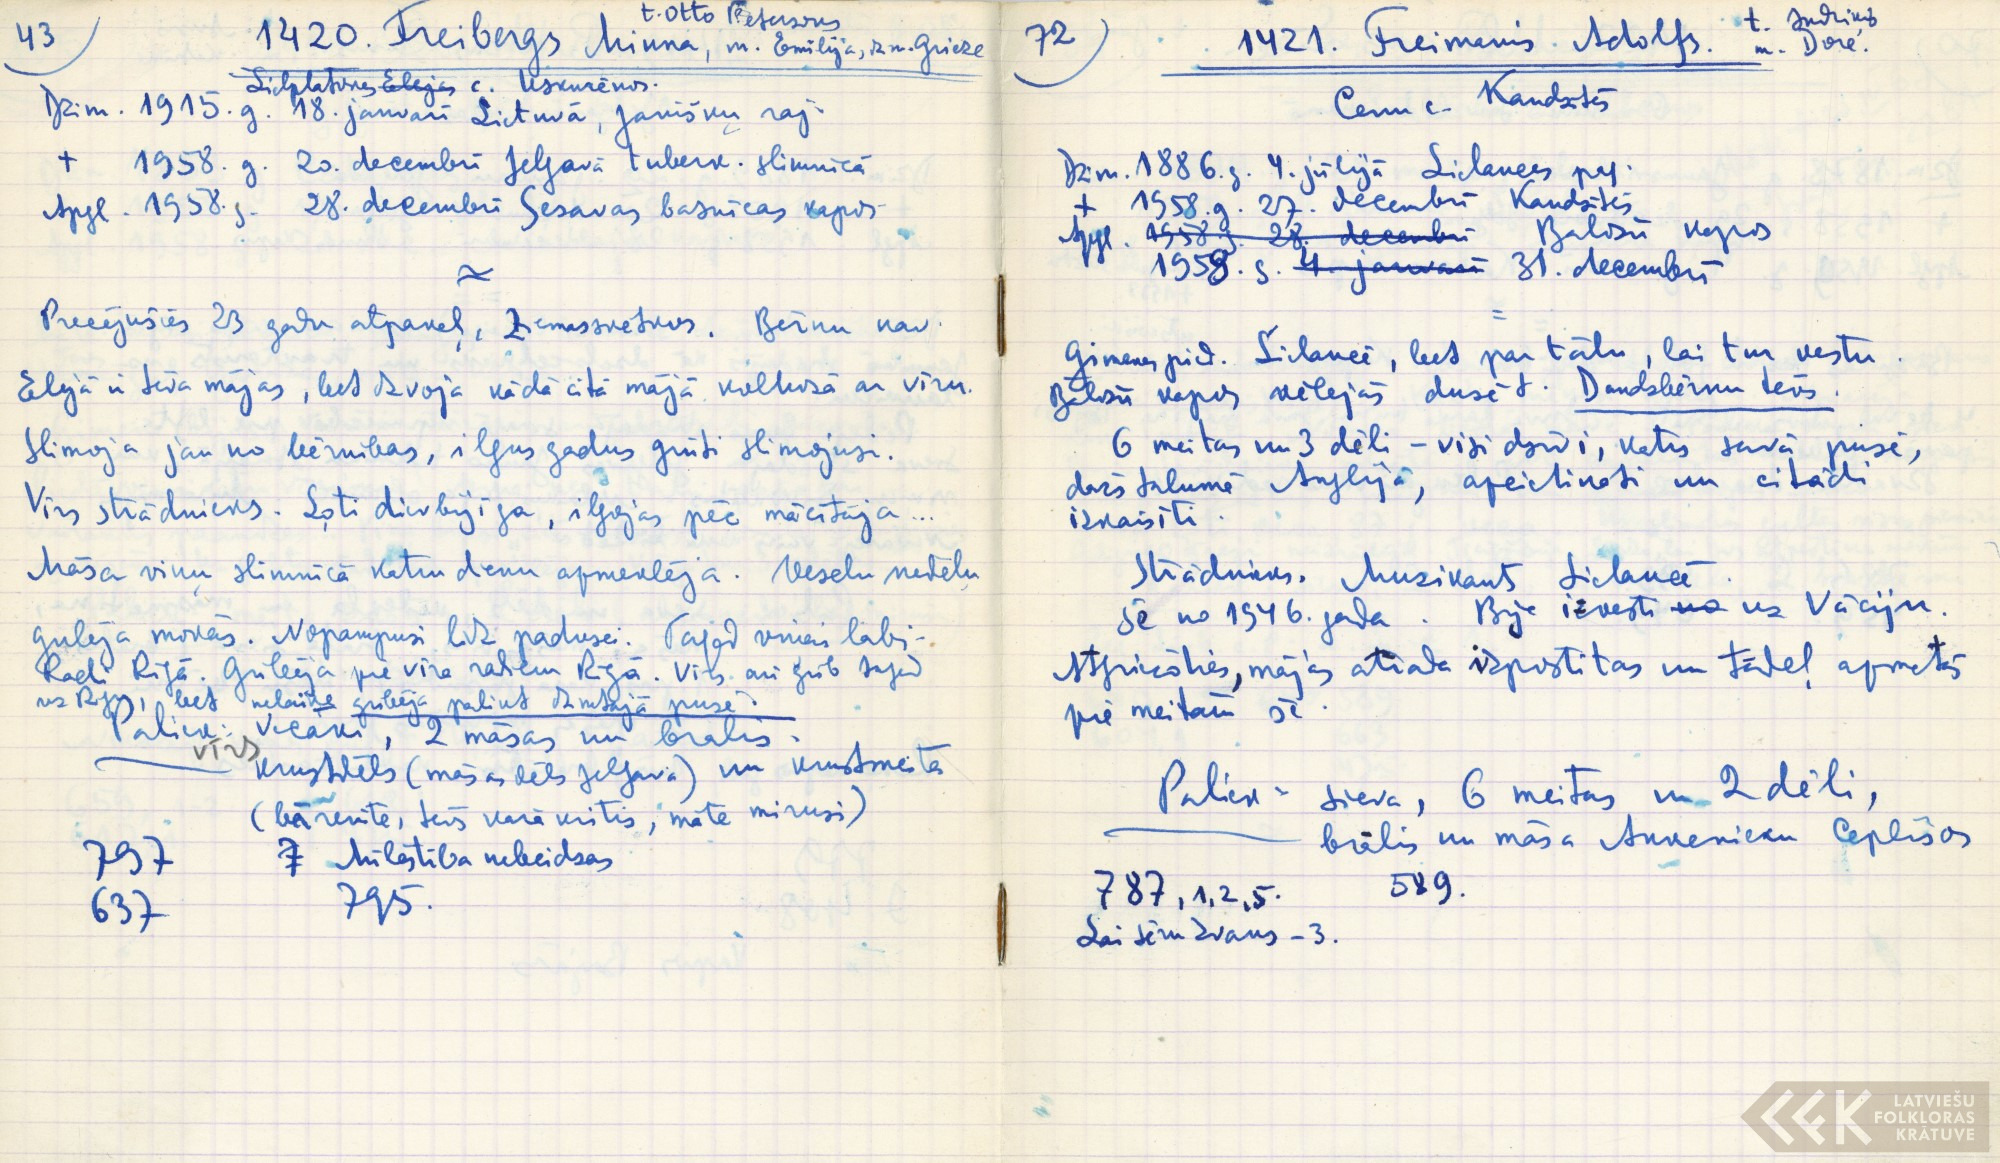 43
t. Otto Petersons
1420. Freibergs Minna, m. Emilija, dz. m. Grieze
Lielplatones Elejas c. Uskurēnos.
Dzim. 1915. g. 18. janvarī Lietuvā, Janišķu raj.
+ 1958. g. 20. decembrī Jelgavā tuberk. slimnīcā
Apgl. 1958. g. 28. decembrī Sesavas baznīcas kapos
≈
Precējušies 23 gadu atpakaļ, Ziemassvētkos. Bērnu nav.
Elejā ir tēva mājas, bet dzvoja kādā citā mājā kolhozā ar vīru.
Slimoja jau no bērnības, ilgus gadus grūti slimojusi.
Vīrs strādnieks. Ļoti dievbijīga, ilgojās pēc mācītāja...
Māsa viņu slimnīcā katru dienu apmeklēja. Veselu nedēļu
gulēja mokās. Nopampusi līdz padusei. Tagad viņai labi.
Radi Rīgā. Gulēja pie vīra radiem Rīgā. Vīrs arī grib tagad
uz Rīgu, bet nelaiķe gribēja palikt dzimtajā pusē.
Paliek: vecāki, 2 māsas un brālis.
vīrs
krustdēls (māsas dēls Jelgavā) un krustmeita
(bārenīte, tēvs karā kritis, māte mirusi)
797 7 Mīlestība nebeidzas
637 795.
72
1421. Freimanis Adolfs. t. Indriķis
m. Dore.
Cenu c. Kandzītēs
Dzim. 1886. g. 4. jūlijā Lielauces pag.
+ 1958. g. 27. decembrī Kandzītēs
Apgl. 1958 g. 28. decembrī Baložu kapos
1958. g. 4. janvarī 31. decembrī
=
Ģimenes pied. Lielaucē, bet par tālu, lai tur vestu.
Baložu kapos vēlējās dusēt. Daudzbērnu tēvs.
6 meitas un 3 dēli – visi dzīvi, katrs savā pusē,
dažs tālumā Anglijā, apcietināti un citādi
izkaisīti.
Strādnieks. Muzikants Lielaucē.
Šē no 1946. gada. Bije izvesti no uz Vāciju.
Atgriežoties, mājas atrada izpostītas un tādēļ apmetās
pie meitām šē.
Paliek: sieva, 6 meitas un 2 dēli,
brālis un māsa Aukenieku Cepļišos
787, 1, 2, 5. 589.
Lai sēru zvans – 3.
LATVIEŠU
FOLKLORAS
KRĀTUVE